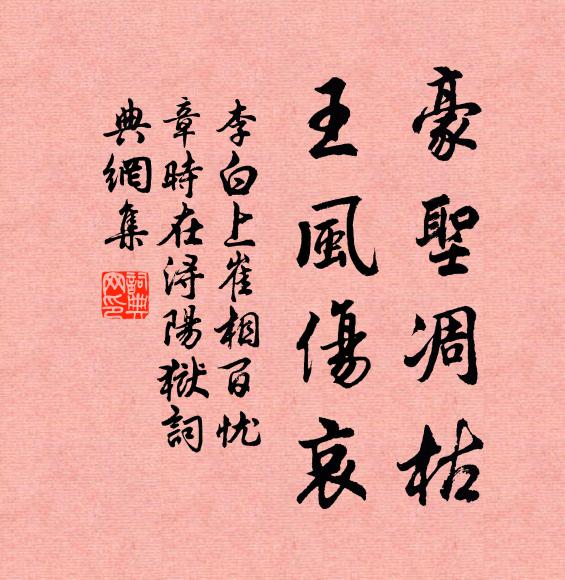 豪聖凋枯
王風傷哀
李白上崔相百忧
章時在浔陽獄詞
典網集
詞典网印